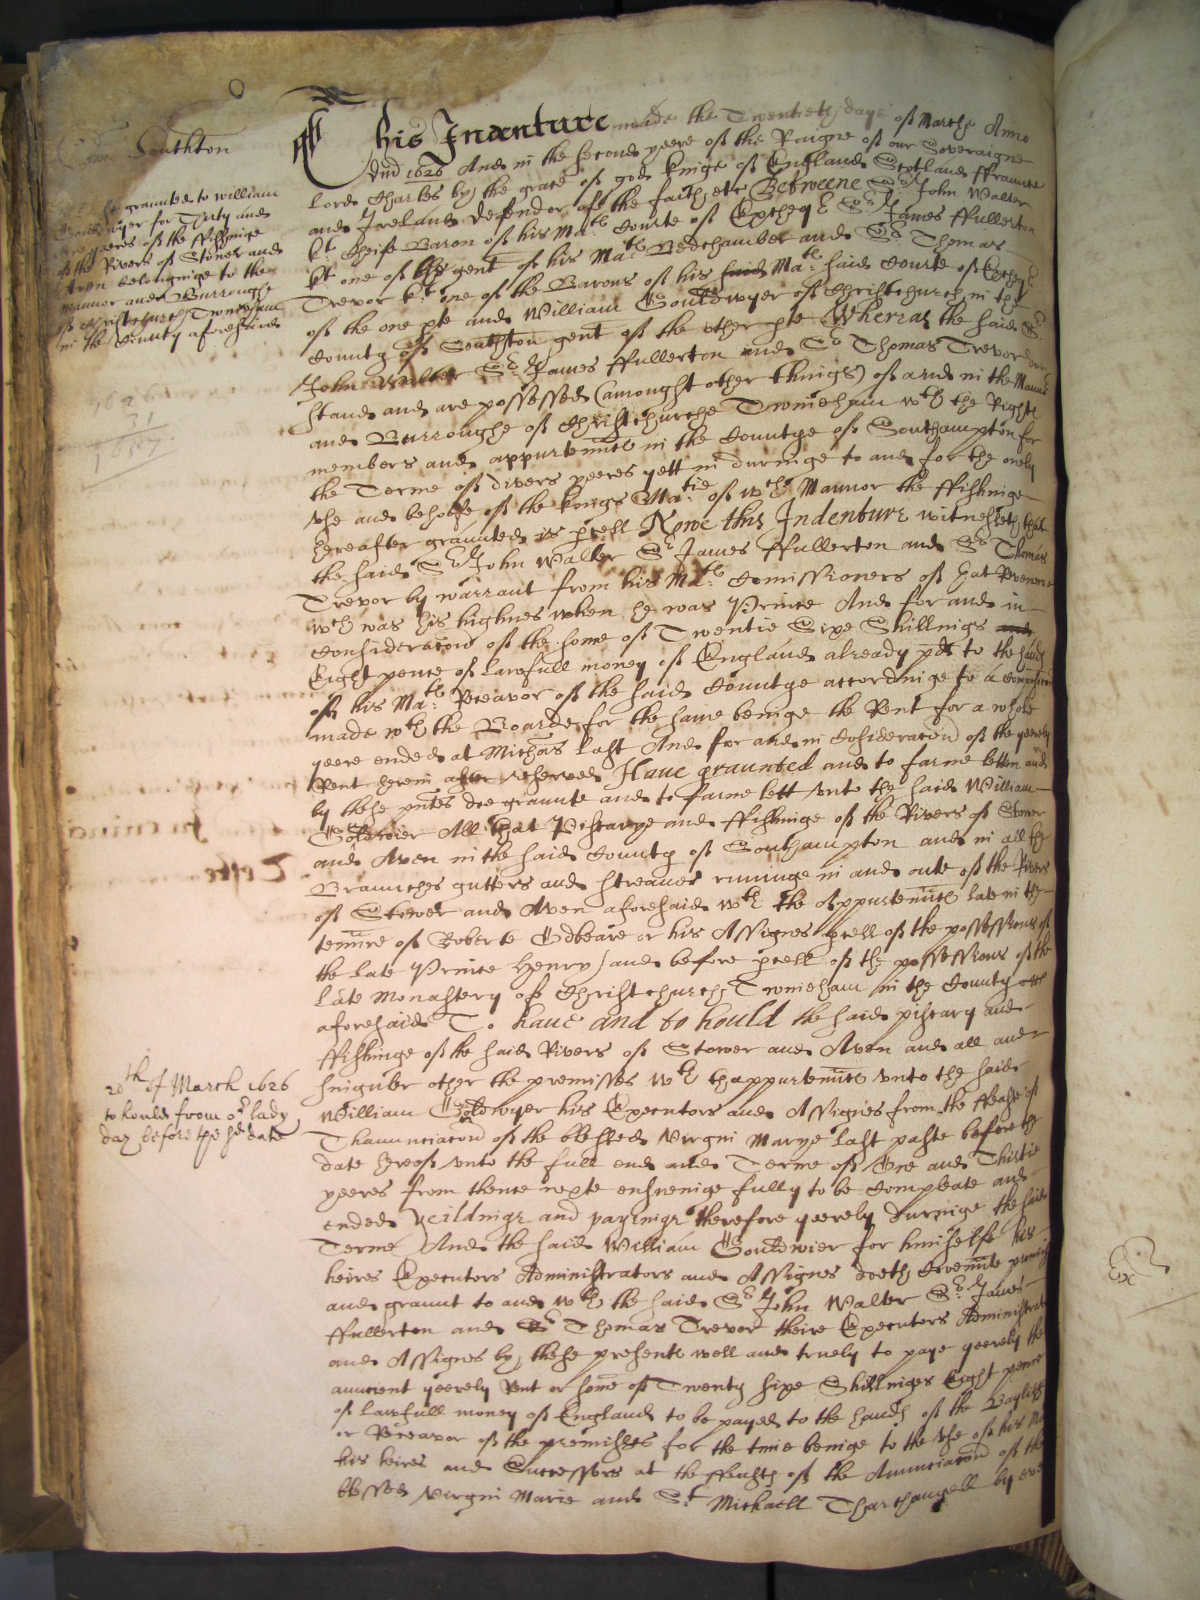 Com Southton
he graunted to William
Gouldwyer for Thirty and
one yeeres of the ffishinge
of the Rivers of Stower and
Aven belonginge to the
mannor and Burroughe
of Christchurch Twineham
in the County aforesaid
1626
31
1657
This Indenture made the Twentieth daye of Marche Anno
dnī 1626 And in the second yeere of the Raigne of our Soveraigne
Lord Charles by the grace of god kinge of England Scotland ffraunce
and Ireland defender of the faith etc Betweene Sr John Walter
kt Cheife Baron of his Matſ Courte of Excheqr Sr James ffullerton
kt one of the gent of his Maties Bedchamber and Sr Thomas
Trevor kt one of the Barons of his said Maties said Courte of Excheqr
of the one pte and William Gouldwyer of Christchurch in the
County of Southton gent of the other pte Whereas the said Sr
John Walter Sr James ffullerton and Sr Thomas Trevor doe
stand and are possessed (amongst other things) of and in the Mannor
and Burroughe of Christchurche Twineham wth the Rights
members and appurtennces in the Countye of Southampton for
the Terme of divers yeeres yett in duringe to and for the onely
vse and behoofe of the kings Matie of wch Mannor the ffishinge
hereafter graunted is pcell Nowe this Indenture witnesseth that
the said Sr John Walter Sr James ffullerton and Sr Thomas
Trevor by warrant from his Maties Comissioners of that Revenewe
wch was his highnes when he was Prince And for and in
Consideracōn of the some of Twentie Sixe Shillings and
Eight pence of lawfull money of England already pd to the hands
of his Maties Receavor of the said Countye accordinge to a Composicōn
made wth the Boarde for the same beinge the Rent for a whole
yeere ended at Michās last And for and in Consideracōn of the yeerely
Rent herein after reserved Haue graunted and to farme letten and
by these pntes doe graunte and to farme lett vnto the said William
Goldwier All that Piscarye and ffishinge of the Rivers of Stower
and Aven in the said County of Southampton and in all the
Braunches gutters and streames runinge in and oute of the Rivers
of Stower and Aven aforesaid wth the Appurtennces late in the
tenure of Roberte Godbeare or his Assignes pcell of the possessions of
the late Prince Henry and before pcell of the possessions of the
late Monastery of Christchurch Twineham in the County
aforesaid To haue and to hould the said piscary and
ffishinge of the said Rivers of Stower and Aven and all and
singuler other the premisses wth thappurtennces vnto the said
William Goldwyer his Executors and Assignes from the ffeaste of
Thannunciacōn of the blessed Virgin Marye last paste before the
date hereof vnto the full end and Terme of One and Thirtie
yeeres from thence nexte ensueinge fully to be Compleate and
ended Yeildinge and payeinge therefore yeerely duringe the said
Terme And the said William Gouldwier for himselfe his
heires Executors Administrators and Assignes doeth Covennte promise
and graunt to and wth the said Sr John Walter Sr James
ffullerton and Sr Thomas Trevor theire Executors Administrators
and Assignes by these presents well and truely to paye yeerely the
auncient yeerely Rent or some of Twenty sixe Shillinges Eight pence
of lawfull money of England to be payed to the hands of the Bayliffe
or Receavor of the premisses for the time beinge to the vse of his Matie
his heires and Successors at the ffeasts of the Anunciacōn of the
blessed Virgin Marie and St Michaell Tharchangell by even
20th of March 1626
to hould from or lady
day before the sd date
Ex